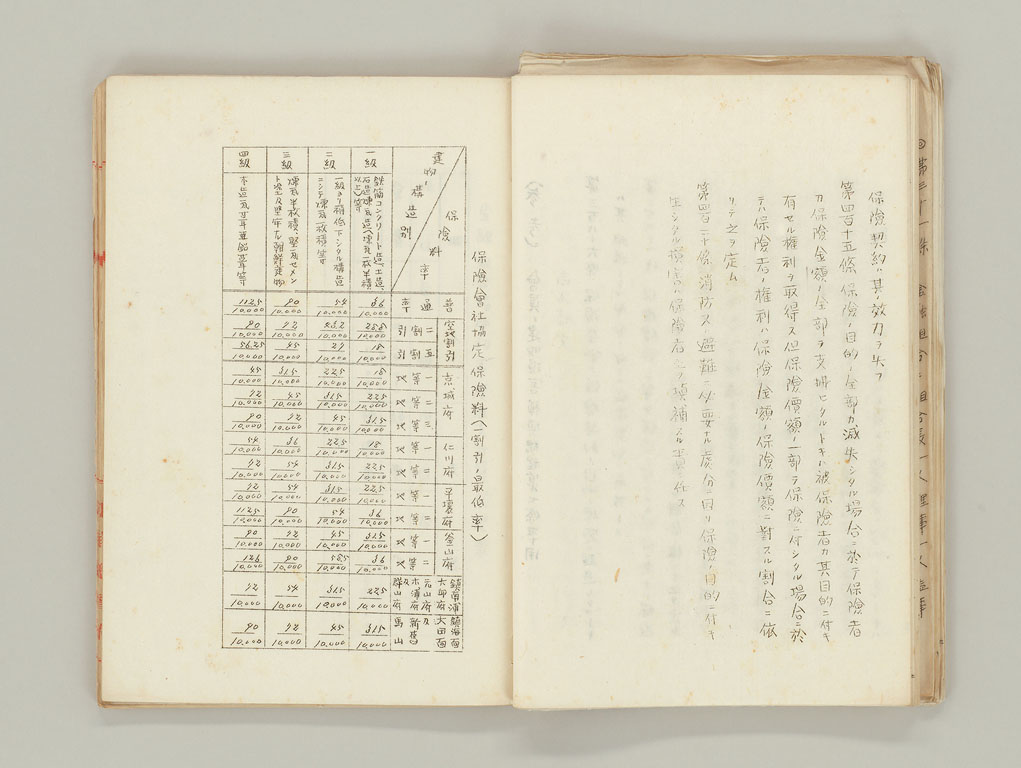 保險契約ハ其ノ效力ヲ失フ
第四百十五條 保險ノ目的ノ全部カ滅失シタル場合ニ於テ保險者
カ保險金額ノ全部ヲ支拂ヒタルトキハ被保險者カ其目的ニ付キ
有セル權利ヲ取得ス但保險價額ノ一部ヲ保險ニ付シタル場合ニ於
テハ保險者ノ權利ハ保險金額ノ保險價額ニ對スル割合ニ依
リテ之ヲ定ム
消防又ハ避難ニ必要ナル處分ニ因リ保險ノ目的ニ付キ
生シタル損害ハ保險者之ヲ塡補スル責ニ任ス
保險會社協定保險料(一割引ノ最低率)
保險料率
建物ノ構造別
普通率
空地割引
二割引
五割引
京城府
一等地
二等地
三等地
仁川府
一等地
二等地
平壤府
一等地
二等地
釜山府
一等地
二等地
鎭南浦
大邱府
元山府
木浦府及
群山府
鎭海面
大田面
及
馬山
一級
鐵筋コンクリート造、土造、
石造、煉瓦造(煉瓦一枚半積
以上)等
36/10,000
28.8/10,000
18/10,000
18/10,000
22.5/10,000
31.5/10,000
18/10,000
22.5/10,000
22.5/10,000
36/10,000
31.5/10,000
36/10,000
22.5/10,000
31.5/10,000
二級
一級ヨリ稍低下シタル構造
ニシテ煉瓦一枚積等
54/10,000
43.2/10,000
27/10,000
22.5/10,000
31.5/10,000
45/10,000
22.5/10,000
31.5/10,000
31.5/10,000
54/10,000
45/10,000
58.5/10,000
31.5/10,000
45/10,000
三級
煉瓦半枚積、堅瓦セメン
ト塗及堅牢ナル朝鮮建物
90/10,000
72/10,000
45/10,000
31.5/10,000
45/10,000
72/10,000
36/10,000
54/10,000
54/10,000
90/10,000
72/10,000
90/10,000
54/10,000
72/10,000
四級
木造瓦葺亞鉛葺等
112.5/10,000
90/10,000
56.25/10,000
45/10,000
72/10,000
90/10,000
54/10,000
72/10,000
72/10,000
112.5/10,000
90/10,000
126/10,000
72/10,000
90/10,000